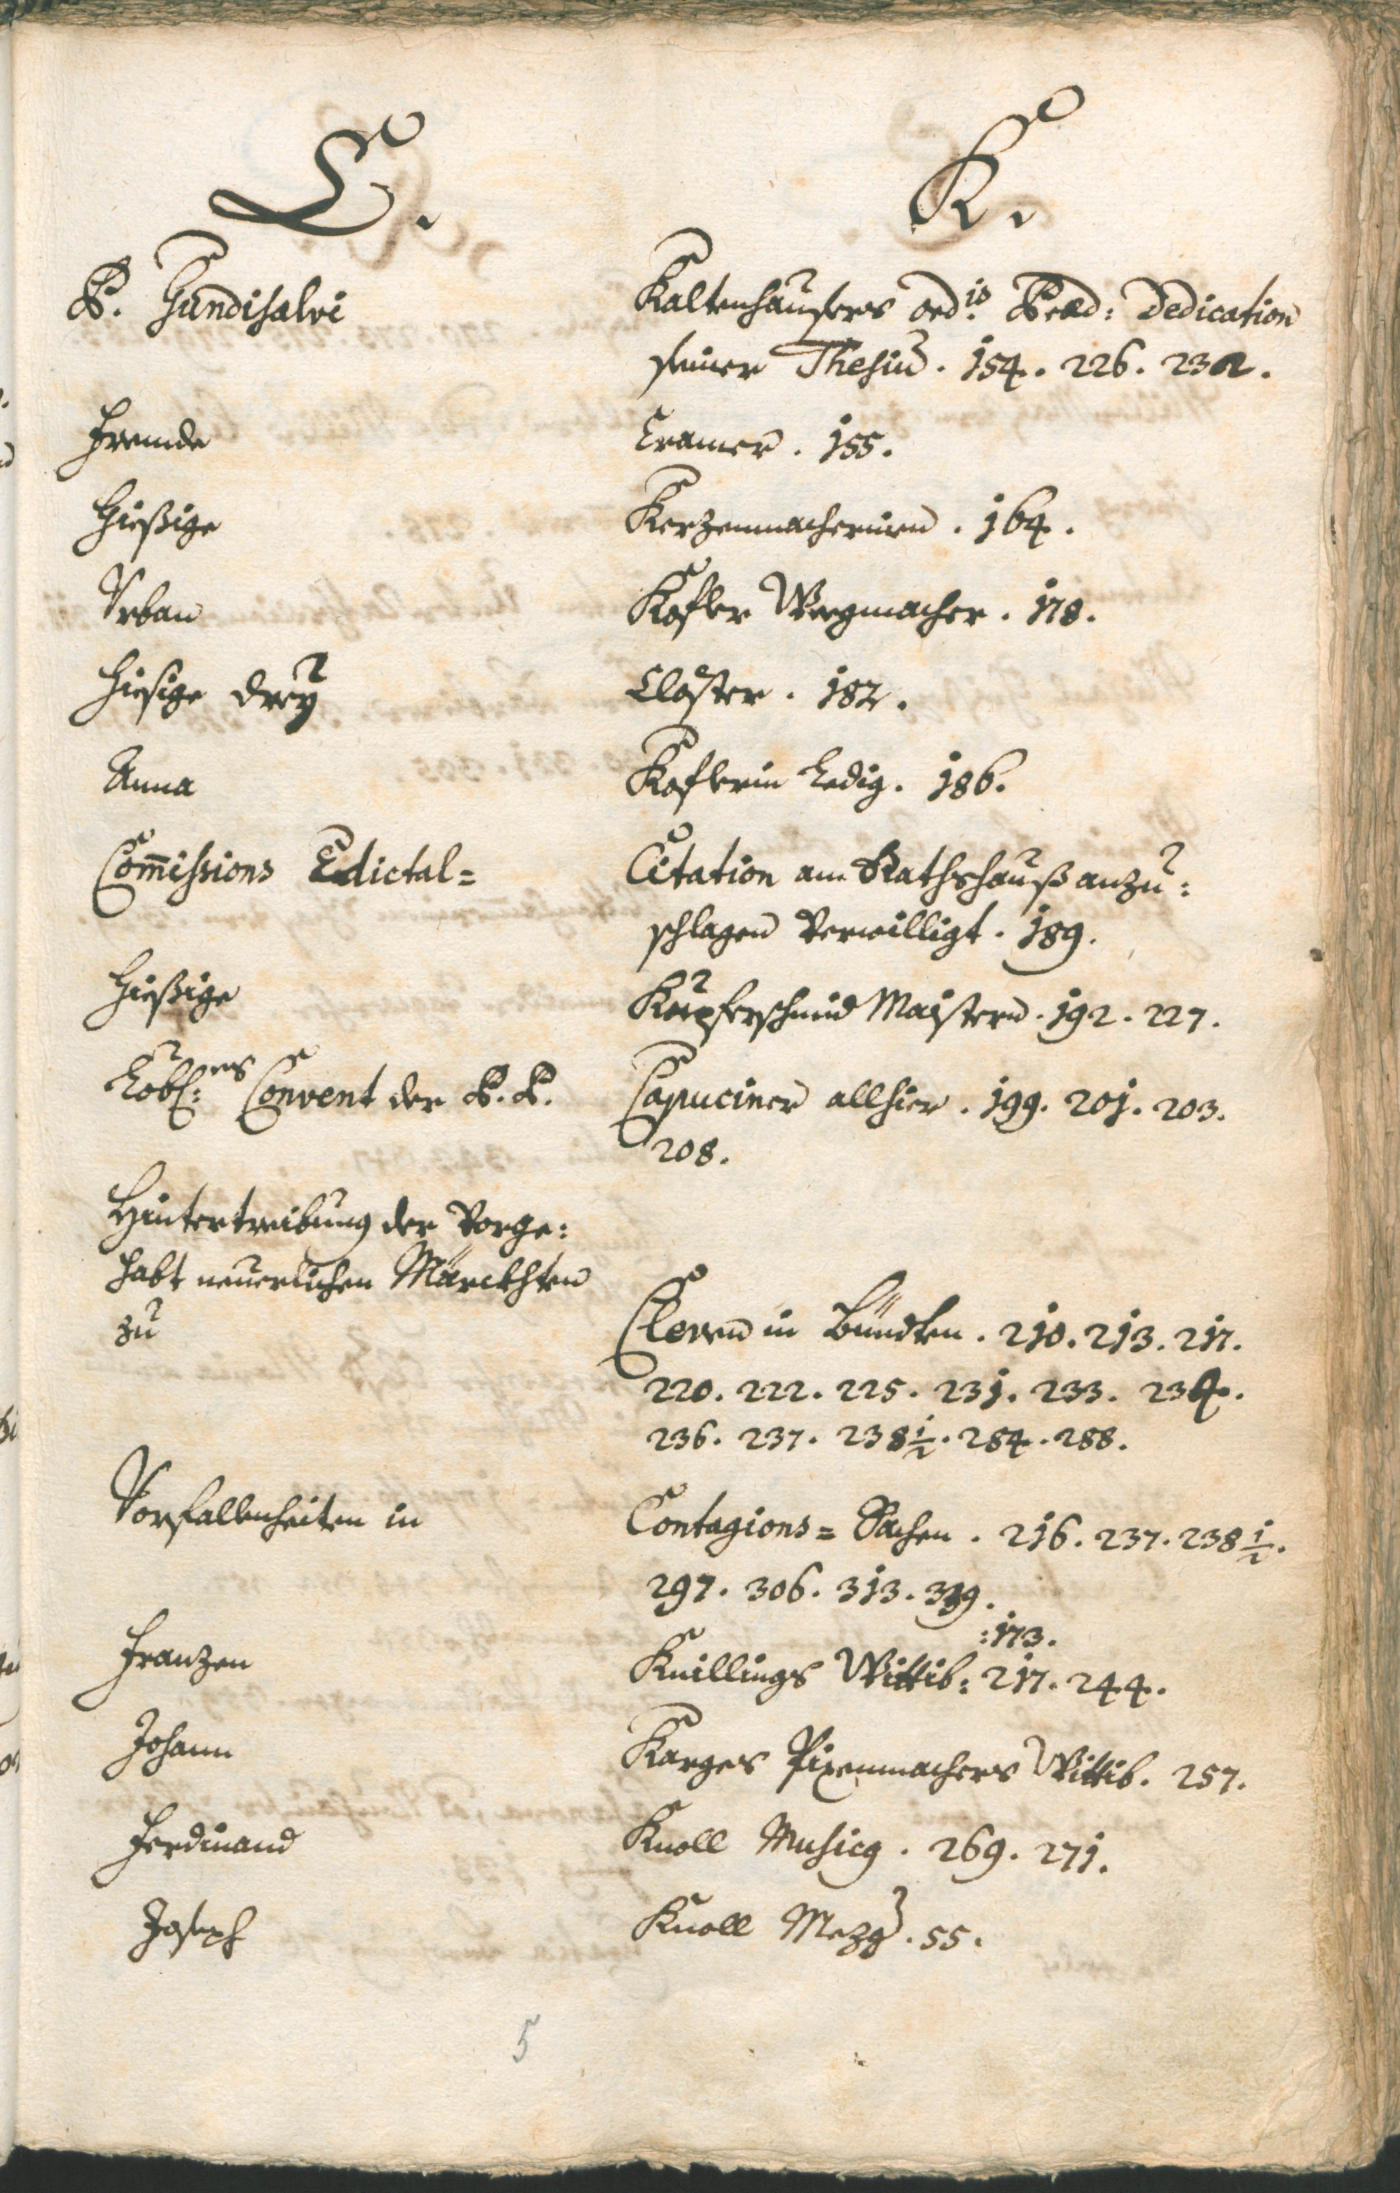 C. K.
P. Gundisalvi Kaltenhausers ord:is Præd: Dedication
seiner Thesiu. 154. 226. 232.
Fremde Cramer. 155.
Hießige Kerzenmachereien. 164.
Urban Kofler Wegmacher. 178.
Hiesige drey Clöster. 182.
Anna Koflerin ledig. 186.
Com̅issions Edictal= Citation am Rathshauß anzu:
schlagen verwilligt. 189.
Hießige Kupferschmid Maistern. 192. 227.
Löbl:es Convent der P. P. Capuciner allhier. 199. 201. 203.
208.
Hintertreibung der Vorge:
habt neuerlichen Märckhten
zu Cleven in Bündten. 210. 213. 217.
220. 222. 225. 231. 233. 234.
236. 237. 238½. 284. 288.
Vorfallenheiten in Contagions= Sachen. 216. 237. 238½.
297. 306. 313. 319.
:173.
Franzen Knillings Wittib: 217. 244.
Johann Karges Pixenmachers Wittib. 257.
Ferdinand Knoll Musicg. 269. 271.
Joseph Knoll Mezg. 55.
5